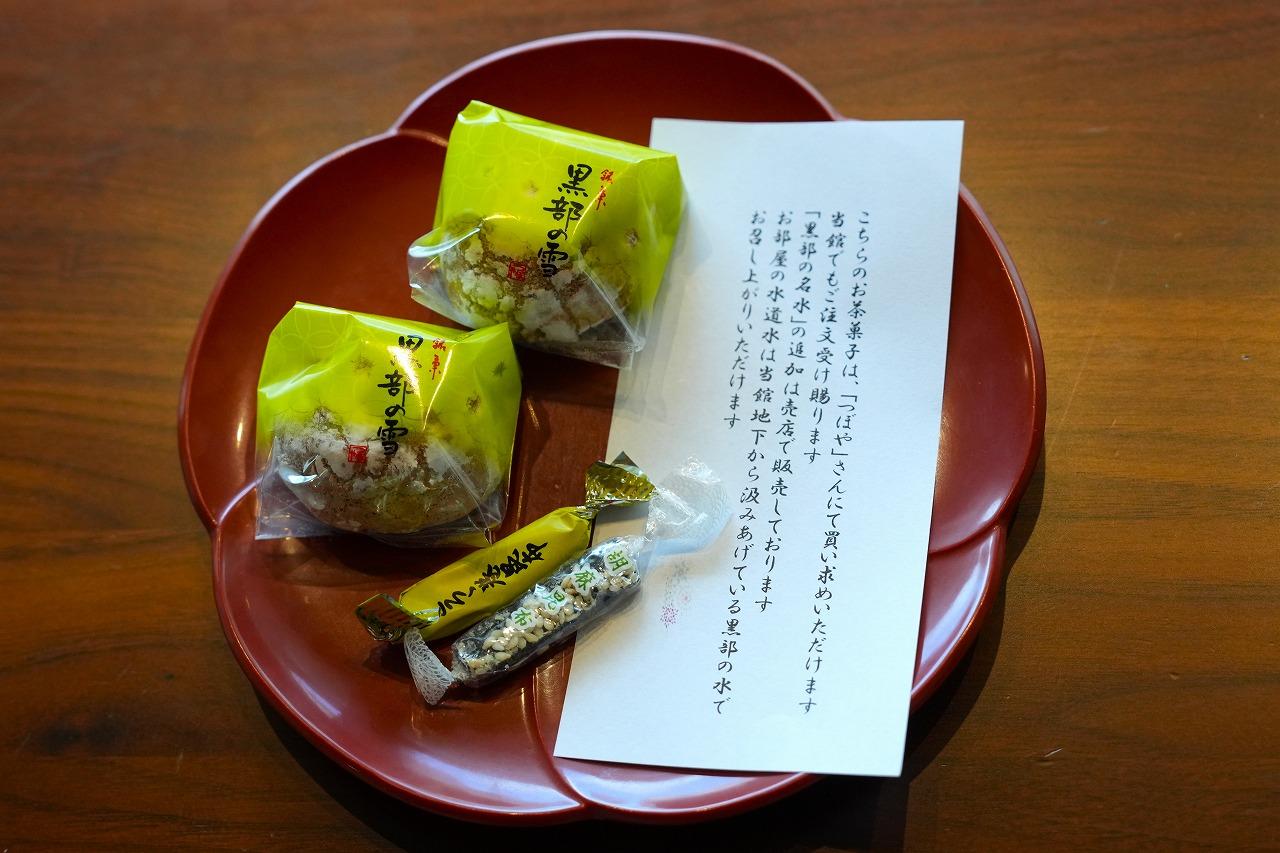 こちらのお茶菓子は、「つぼや」さんにて買い求めいただけます
当館でもご注文受け賜ります
「黒部の名水」の追加は売店で販売しております
お部屋の水道水は当館地下から汲みあげている黒部の水で
お召し上がりいただけます
銘菓
黒部の雪
銘菓
黒部の雪
昆布
胡麻昆布